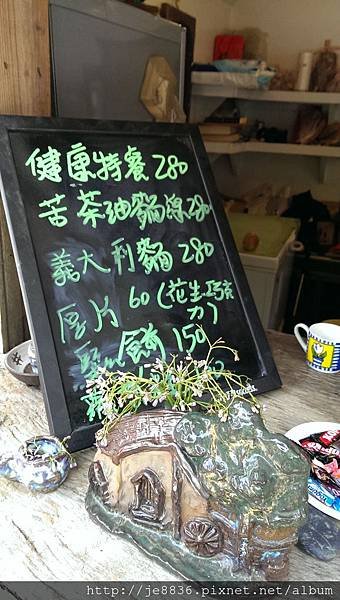 健康特餐 280
苦茶油麵線 280
義大利麵 280
厚片 60 (花生.巧克力)
餅 150
http://je8836.pixnet.net/album